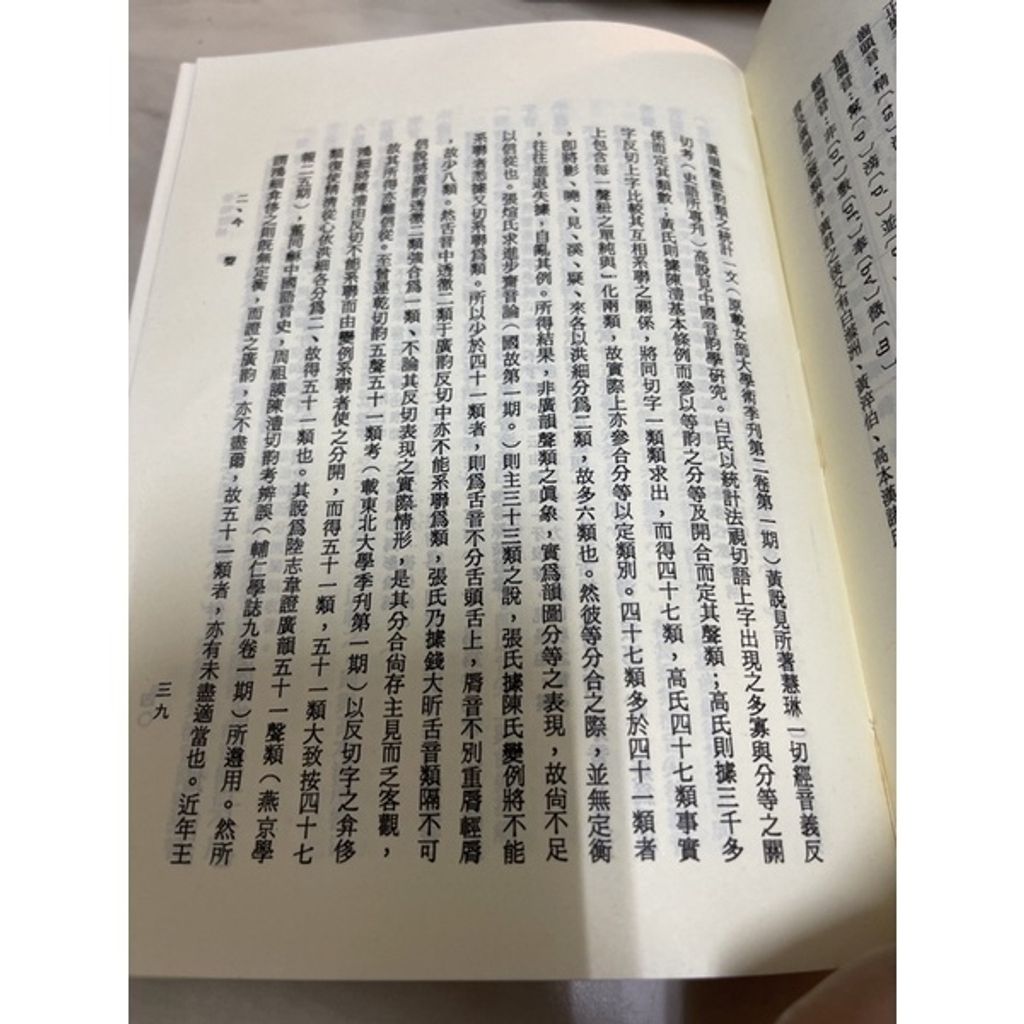 正齒
齒頭音：精（ts）
重脣音：幫（p）滂（p‘）並
輕脣音：非（pf）敷（pf‘）奉（bv）微（ɱ）
言及廣韻之聲類者，黃君之後又有白滌洲、黃淬伯、高本漢諸氏
廣韻聲紐韵類之統計一文（原載女師大學術季刊第二卷第一期）黃說見所著慧琳一切經音義反
切考（史語所專刊）高說見中國音韵學硏究。白氏以統計法視切語上字出現之多寡與分等之關
係而定其類數；黃氏則據陳澧基本條例而參以等韵之分等及開合而定其聲類；高氏則據三千多
字反切上字比較其互相系聯之關係，將同切字一類類求出，而得四十七類，高氏四十七類事實
上包含每一聲紐之單純與j化兩類，故實際上亦參合分等以定類別。四十七類多於四十一類者
，卽將影、曉、見、溪、疑、來各以洪細分爲二類，故多六類也。然彼等分合之際，並無定衡
，往往進退失據，自亂其例。所得結果，非廣韻聲類之眞象，實爲韻圖分等之表現，故尙不足
以信從也。張煊氏求進步齋音論（國故第一期。）則主三十三類之說，張氏據陳氏變例將不能
系聯者悉據又切系聯爲類。所以少於四十一類者，則爲舌音不分舌頭舌上，脣音不別重脣輕脣
，故少八類。然舌音中透徹二類于廣韵反切中亦不能系聯爲類，張氏乃據錢大昕舌音類隔不可
信說將透徹二類強合爲一類、不論其反切表現之實際情形，是其分合尙存主見而乏客觀，
故其所得亦難信從。至曾運乾切韵五聲五十一類考（載東北大學季刊第一期）以反切字之弇侈
鴻細將陳澧由反切不能系聯而由變例系聯者使之分開，而得五十一類，五十一類大致按四十七
類復使精清從心依洪細各分爲二、故得五十一類也。其說爲陸志韋證廣韻五十一聲類（燕京學
報二五期），董同龢中國語音史，周祖謨陳澧切韵考辨誤（輔仁學誌九卷一期）所遵用。然所
謂鴻細弇侈之則旣無定衡，而證之廣韵，亦不盡爾，故五十一類者，亦有未盡適當也。近年王
二、今 聲
三九